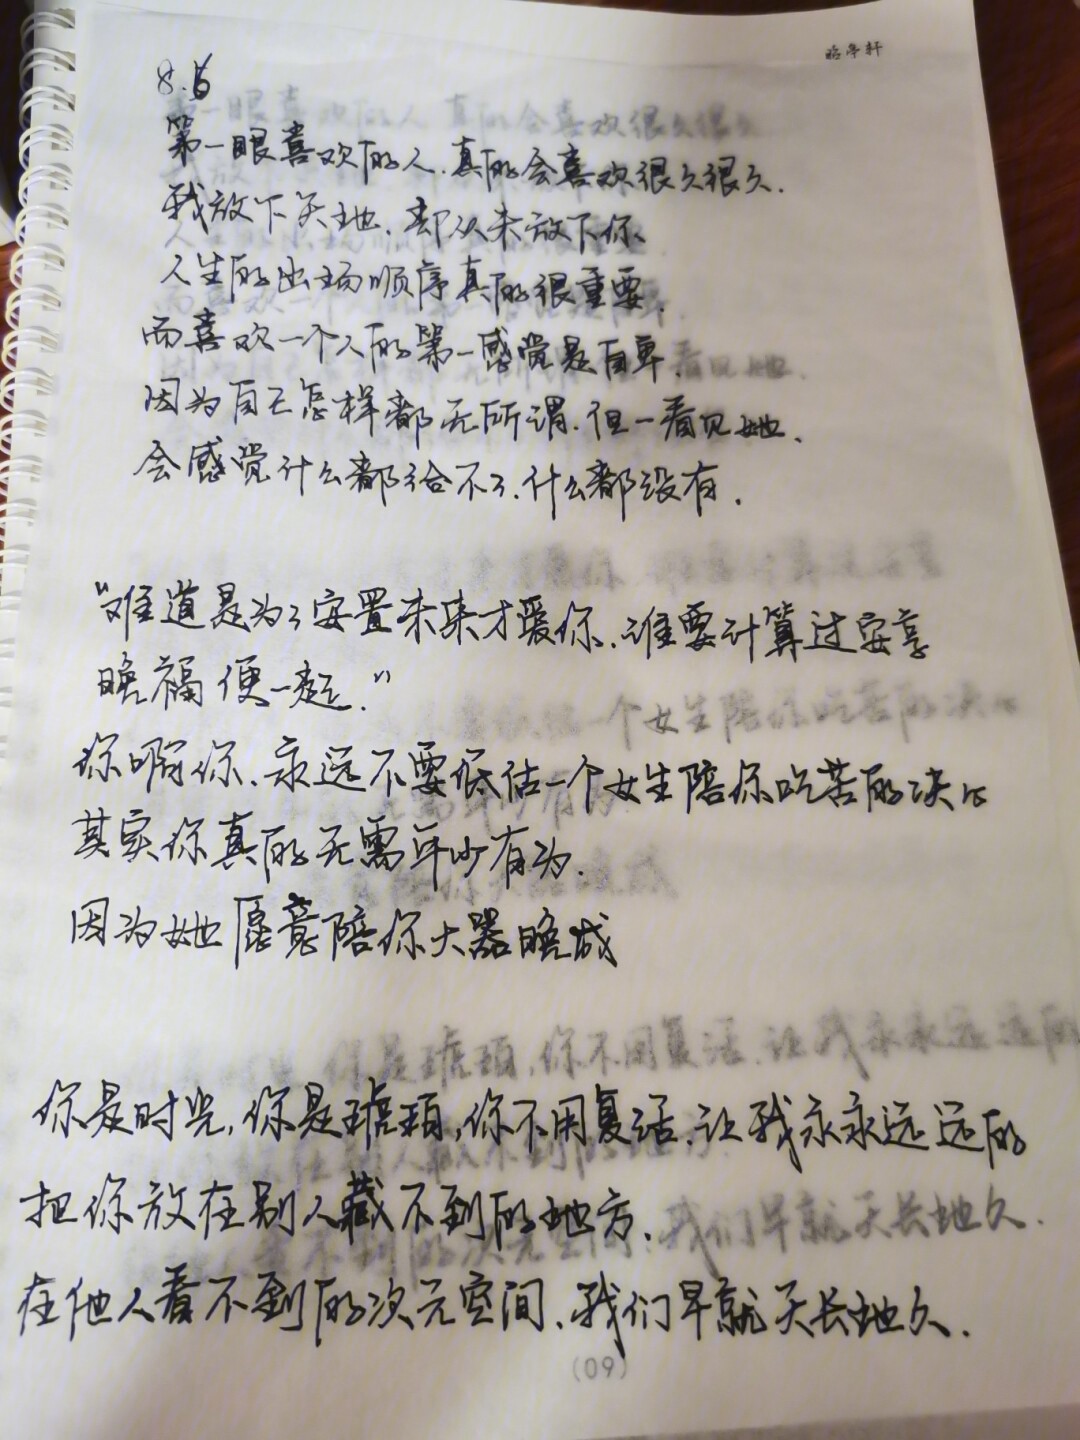 8.6
第一眼喜欢的人.真的会喜欢很久很久.
我放下天地.却从未放下你.
人生的出场顺序真的很重要.
而喜欢一个人的第一感觉是自卑.
因为自己怎样都无所谓.但一看见她.
会感觉什么都给不了.什么都没有.
“难道是为了安置未来才爱你.谁要计算过安享
晚福便一起.”
你啊你.永远不要低估一个女生陪你吃苦的决心
其实你真的无需年少有为.
因为她愿意陪你大器晚成
你是时光,你是琥珀,你不用复活.让我永永远远的
把你放在别人藏不到的地方.
在他人看不到的次元空间.我们早就天长地久.
(09)